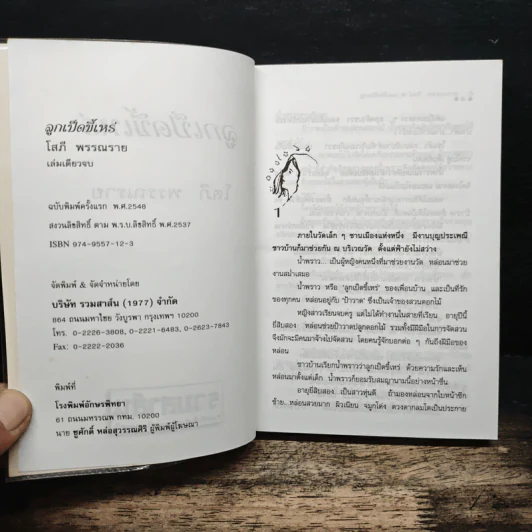 ลูกเป็ดขี้เหร่
โสภี พรรณราย
เล่มเดียวจบ
ฉบับพิมพ์ครั้งแรก พ.ศ.2548
สงวนลิขสิทธิ์ ตาม พ.ร.บ.ลิขสิทธิ์ พ.ศ.2537
ISBN 974-9557-12-3
จัดพิมพ์ & จัดจำหน่ายโดย
บริษัท รวมสาส์น (1977) จำกัด
864 ถนนมหาไชย วังบูรพา กรุงเทพฯ 10200
โทร. 0-2226-3808, 0-2221-6483, 0-2623-7843
Fax: 0-2222-2036
พิมพ์ที่
โรงพิมพ์อักษรพิทยา
21 ถนนแพร่งนรา กทม. 10200
นาย ชูศักดิ์ หล่อสุวรรณศิริ ผู้พิมพ์ผู้โฆษณา
1
ภายในวัดเล็ก ๆ ชานเมืองแห่งหนึ่ง มีงานบุญประเพณี
ชาวบ้านก็มาช่วยกัน ณ บริเวณวัด ตั้งแต่ฟ้ายังไม่สว่าง
น้ำพราว... เป็นผู้หญิงคนหนึ่งที่มาช่วยงานวัด หล่อนมาช่วย
งานสม่ำเสมอ
น้ำพราว หรือ 'ลูกเป็ดขี้เหร่' ของเพื่อนบ้าน และเป็นที่รัก
ของทุกคน หล่อนอยู่กับ 'ป้าวาด' ซึ่งเป็นเจ้าของสวนดอกไม้
หญิงสาวเรียนจบครู แต่ไม่ได้ทำงานในสายที่เรียน อายุปีนี้
ยี่สิบสอง หล่อนช่วยป้าวาดปลูกดอกไม้ รวมทั้งมีฝีมือในการจัดสวน
จึงมักจะมีคนมาจ้างไปจัดสวน โดยคนรู้จักบอกต่อ ๆ กันถึงฝีมือของ
หล่อน
ชาวบ้านเรียกน้ำพราวว่าลูกเป็ดขี้เหร่ ด้วยความรักและเห็น
หล่อนมาตั้งแต่เด็ก น้ำพราวก็ยอมรับสมญานามนี้อย่างหน้าชื่น
อายุยี่สิบสอง เป็นสาวหุ่นดี ถ้ามองหล่อนจากใบหน้าซีก
ซ้าย...หล่อนสวยมาก ผิวเนียน จมูกโด่ง ดวงตากลมโตเป็นประกาย